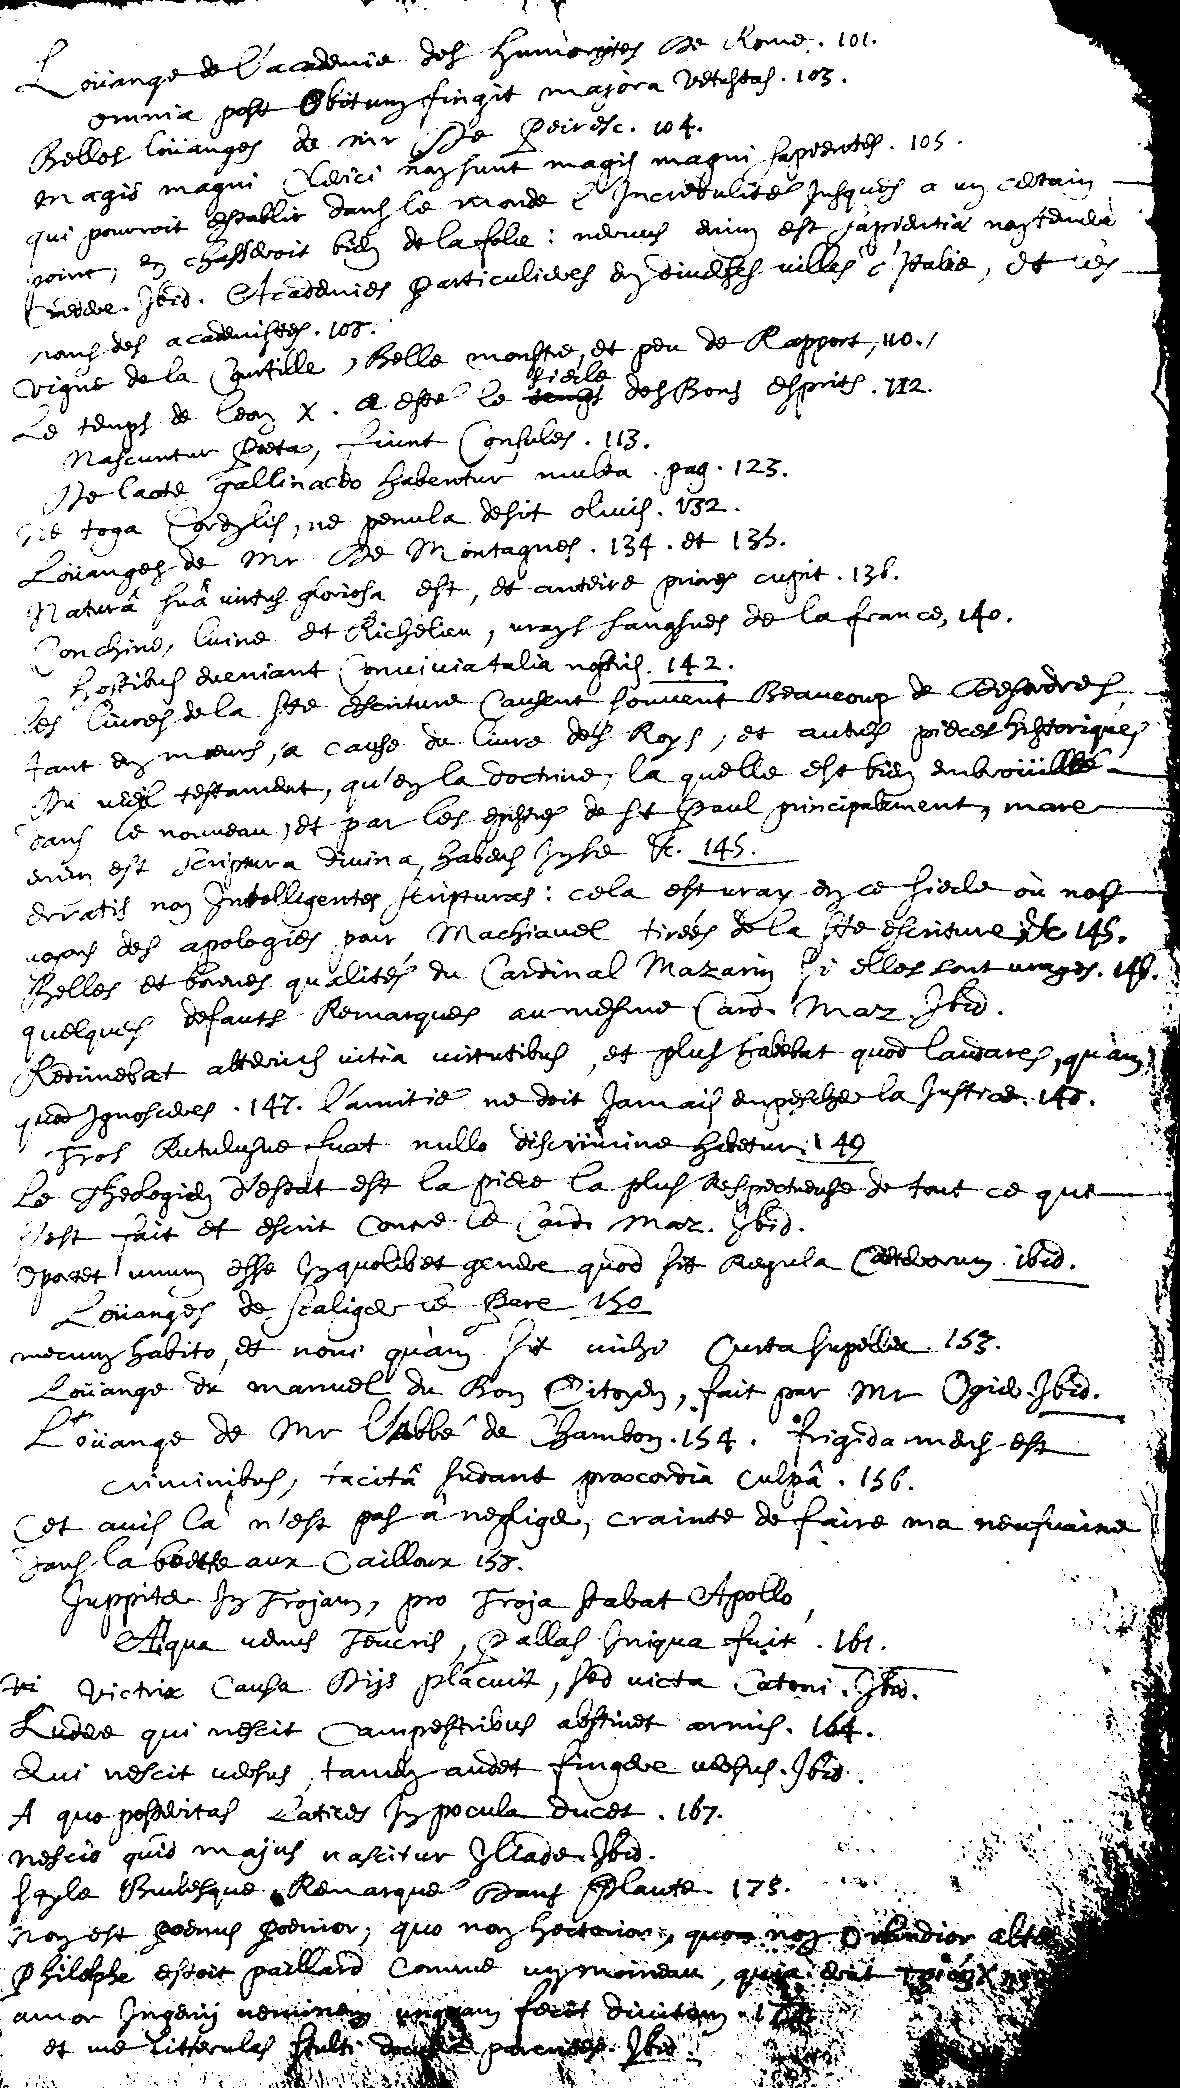 Loüange de l'academie des humoristes de Rome. 101.
omnia post obitum fingit majora vetustas. 103.
Belles loüanges de mr de Peiresc. 104.
magis magni Clerici non sunt magis magni sapientes. 105.
qui pourroit establir dans le monde l'Incredulité jusques a un certain
point, en chasseroit bien de la folie: nervus enim est sapientiæ non temerè
Credere. Ibid. Academies particulieres en diverses villes d'Italie, et les
noms des academistes. 108.
vigne de la Courtille, Belle monstre, et peu de Rapport, 110.
Le temps de leon X. a esté le siecle des Bons esprits. 112.
Nascuntur Poetæ, fiunt Consules. 113.
De lacte gallinaceo habentur multa. pag. 123.
Ne toga Cordylis, ne penula desit olivis. 132.
Loüanges de Mr de Montagnes. 134. et 135.
Naturâ suâ virtus gloriosa est, et anteire priores cupit. 136.
Conchine, luine et Richelieu, vrays sangsues de la france, 140.
Hostibus eveniant Convivia talia nostris. 142.
les livres de la Ste escriture Causent souvent Beaucoup de desordres
tant en mœurs, a cause du livre des Roys, et autres pieces historiques
du vieil testament, qu'en la doctrine, la quelle est bien embroüillée
dans le nouveau, et par les epistres de St Paul principalement, mare
enim est scriptura divina, habens in se &c. 145.
erratis non Intelligentes scripturas: cela est vray en ce siecle où nous
voyons des apologies pour Machiavel tirées de la Ste escriture &c 145.
Belles et bonnes qualités du Cardinal Mazarin si elles sont vrayes. 146.
quelques defauts Remarques au mesme Card. Maz. Ibid.
Redimebat alterius vitia virtutibus, et plus habebat quod laudares, quam
quod Ignosceres. 147. l'amitié ne doit Jamais empescher la Justice. 148.
Tros Rutulusve fuat nullo discrimine habetur. 149
Le Theologien d'estat est la piece la plus Respectueuse de tout ce que
s'est fait et escrit Contre le Card. Maz. Ibid.
oportet unum esse In quolibet genere quod sit Regula Cæterorum. ibid.
Loüanges de scaliger le Pere 150
mecum habito, et novi quàm sit mihi Curta supellex 153.
Loüange du manuel du Bon Citoyen, fait par Mr Ogier. Ibid.
Loüange de Mr l'Abbé de Chambon. 154. frigida mens est
criminibus, tacitâ sudant præcordia culpâ. 156.
Cet avis là n'est pas à negliger, crainte de faire ma neufvaine
dans la boette aux Cailloux 158.
Juppiter In Trojam, pro Troja stabat Apollo,
Æqua venus Teucris, Pallas Iniqua fuit. 161.
victrix Causa Diis placuit, sed victa Catoni. Ibid.
Ludere qui nescit Campestribus abstinet armis. 164.
Qui nescit versus, tamen audet fingere versus. Ibid.
A quo posteritas latices In pocula ducet. 167.
nescio quid majus nascitur Iliade. Ibid.
style Burlesque Remarqué dans Plaute. 173.
Non est pœnus pœnior, quo non alter
Philelphe estoit paillard comme un moineau, quia erat
amor Ingenij neminem unquam fecit divitem.
et me litterulas stulti docuere parentes. Ibid.